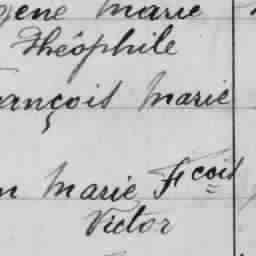 gène Marie
Théophile
ançois Marie
n Marie Fcois
Victor